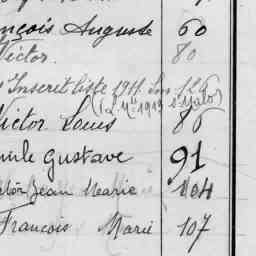 nçois Auguste 60
Victor. 80
Inscrit liste 1911 Ins 126
(1913 St Malo)
Victor Louis 86
mile Gustave 91
Jean Marie 104
François Marie 107